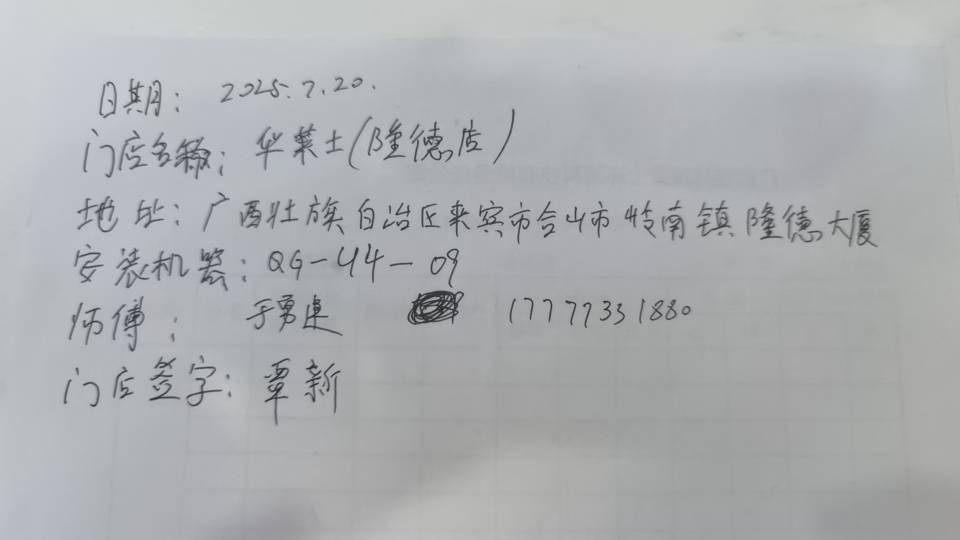 日期：2025.7.20.
门店名称：华莱士(隆德店)
地址：广西壮族自治区来宾市合山市岭南镇隆德大厦
安装机器：QG-44-09
师傅：于勇建 17777331880
门店签字：覃新